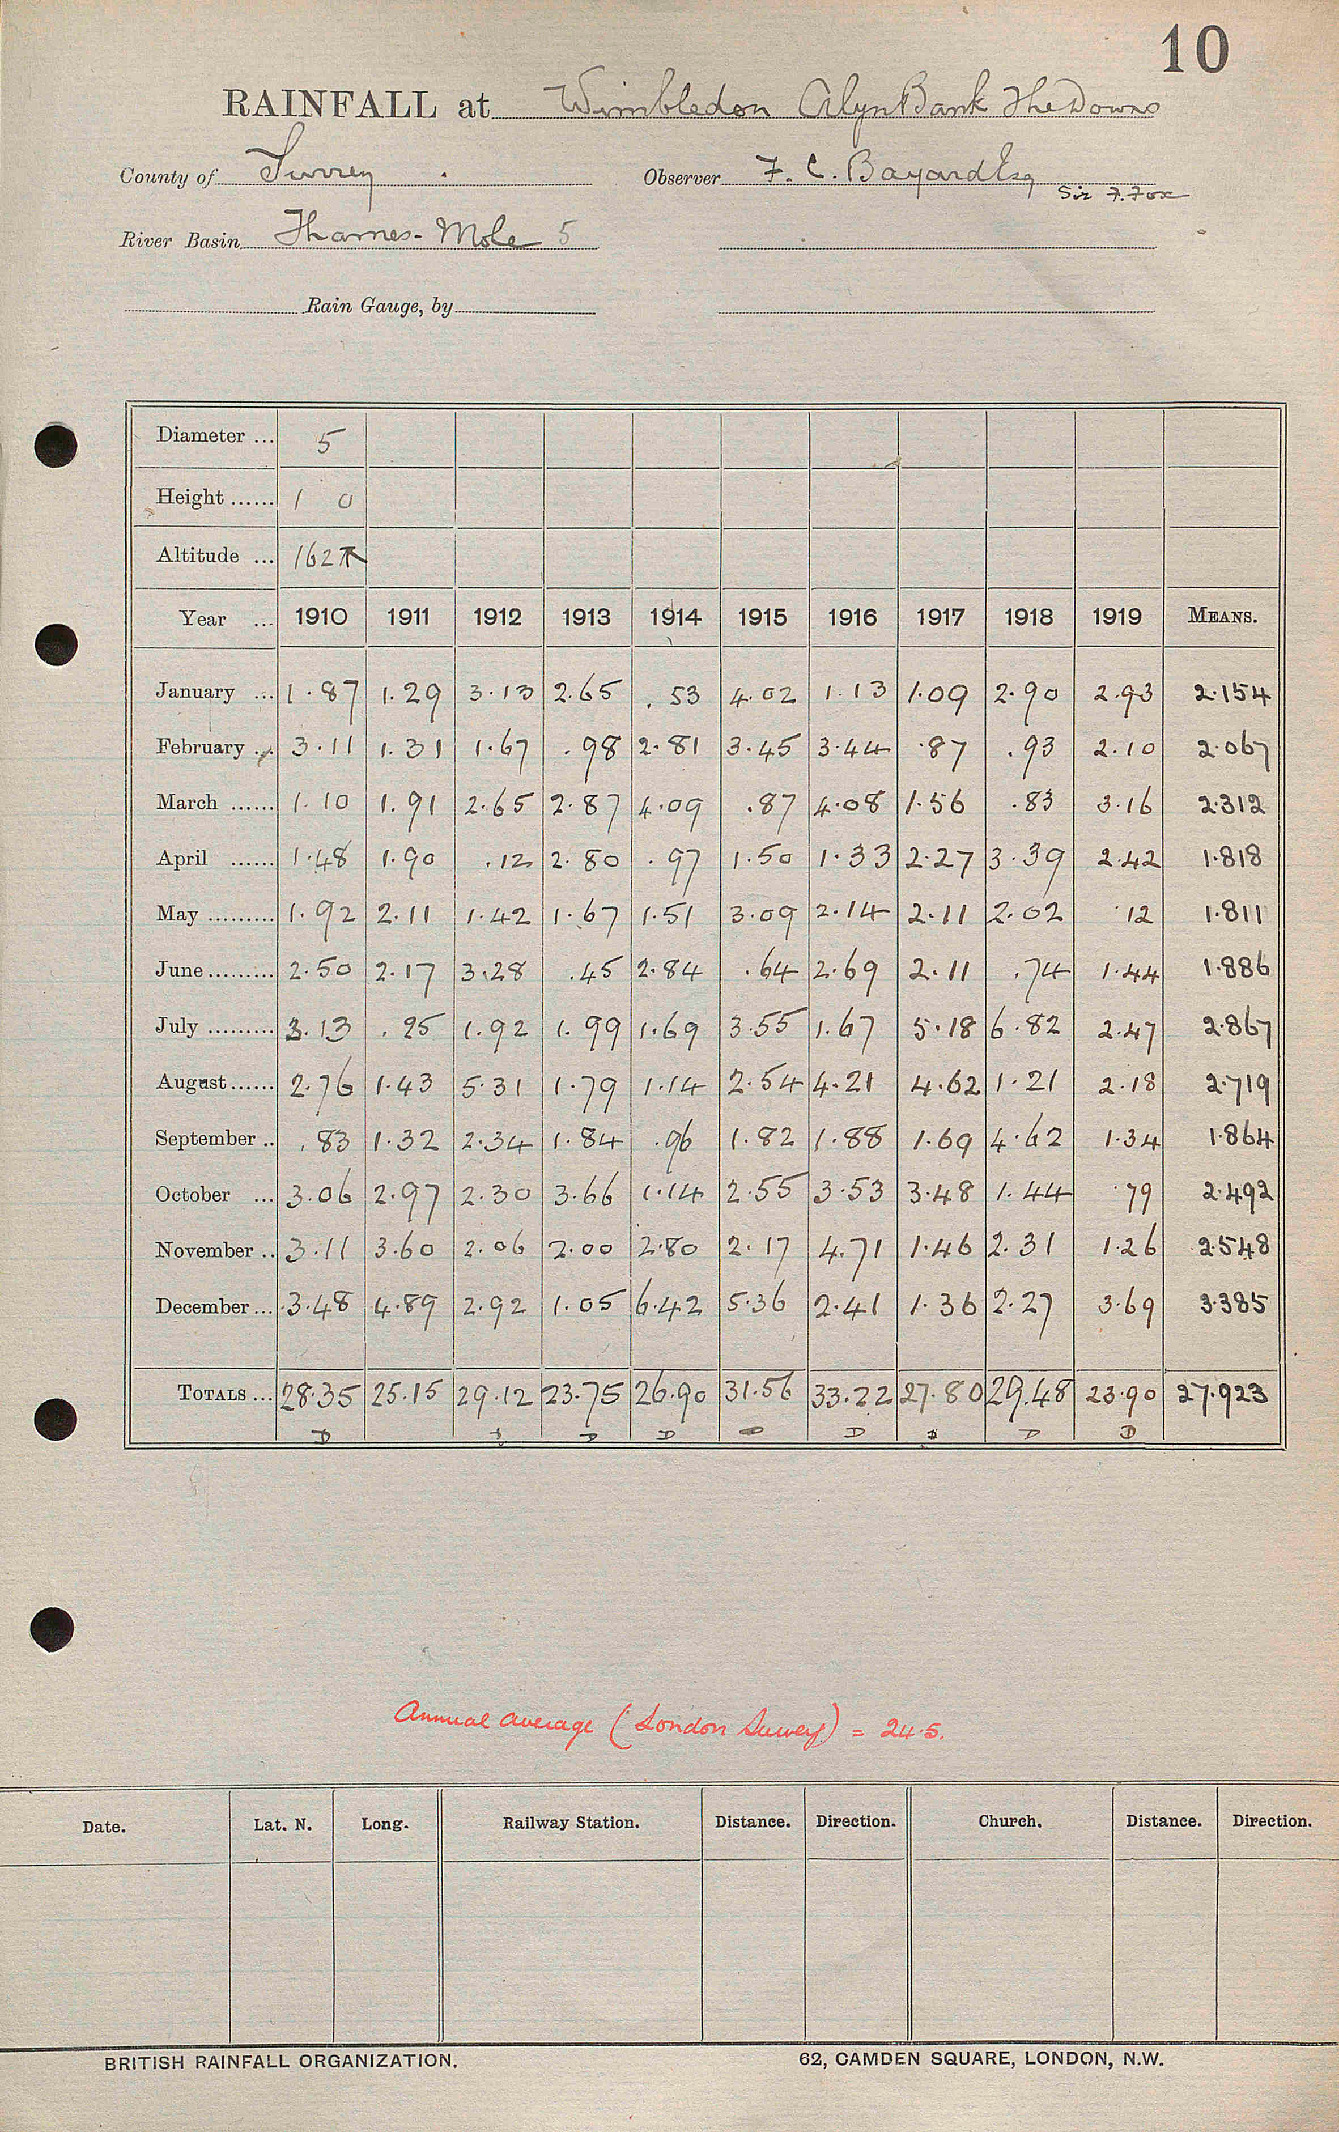 10
RAINFALL at Wimbledon Alyn Bank The Downs
County of Surrey Observer F. C. Bayard Esq
Sir F. Fox
River Basin Thames - Mole 5
Rain Gauge, by
Diameter ... 5
Height ...... 1 0
Altitude ... 162
Year ... 1910 1911 1912 1913 1914 1915 1916 1917 1918 1919 MEANS.
January ... 1.87 1.29 3.13 2.65 .53 4.02 1.13 1.09 2.90 2.93 2.154
February ... 3.11 1.31 1.67 .98 2.81 3.45 3.44 .87 .93 2.10 2.067
March ...... 1.10 1.91 2.65 2.87 4.09 .87 4.08 1.56 .83 3.16 2.312
April ...... 1.48 1.90 .12 2.80 .97 1.50 1.33 2.27 3.39 2.42 1.818
May ......... 1.92 2.11 1.42 1.67 1.51 3.09 2.14 2.11 2.02 .12 1.811
June ......... 2.50 2.17 3.28 .45 2.84 .64 2.69 2.11 .74 1.44 1.886
July ......... 3.13 .25 1.92 1.99 1.69 3.55 1.67 5.18 6.82 2.47 2.867
August ...... 2.76 1.43 5.31 1.79 1.14 2.54 4.21 4.62 1.21 2.18 2.719
September .. .83 1.32 2.34 1.84 .96 1.82 1.88 1.69 4.62 1.34 1.864
October ... 3.06 2.97 2.30 3.66 1.14 2.55 3.53 3.48 1.44 .79 2.492
November .. 3.11 3.60 2.06 2.00 2.80 2.17 4.71 1.46 2.31 1.26 2.548
December ... 3.48 4.89 2.92 1.05 6.42 5.36 2.41 1.36 2.27 3.69 3.385
TOTALS ... 28.35 25.15 29.12 23.75 26.90 31.56 33.22 27.80 29.48 23.90 27.923
Annual average (London Survey) = 24.5.
Date. Lat. N. Long. Railway Station. Distance. Direction. Church. Distance. Direction.
BRITISH RAINFALL ORGANIZATION. 62, CAMDEN SQUARE, LONDON, N.W.